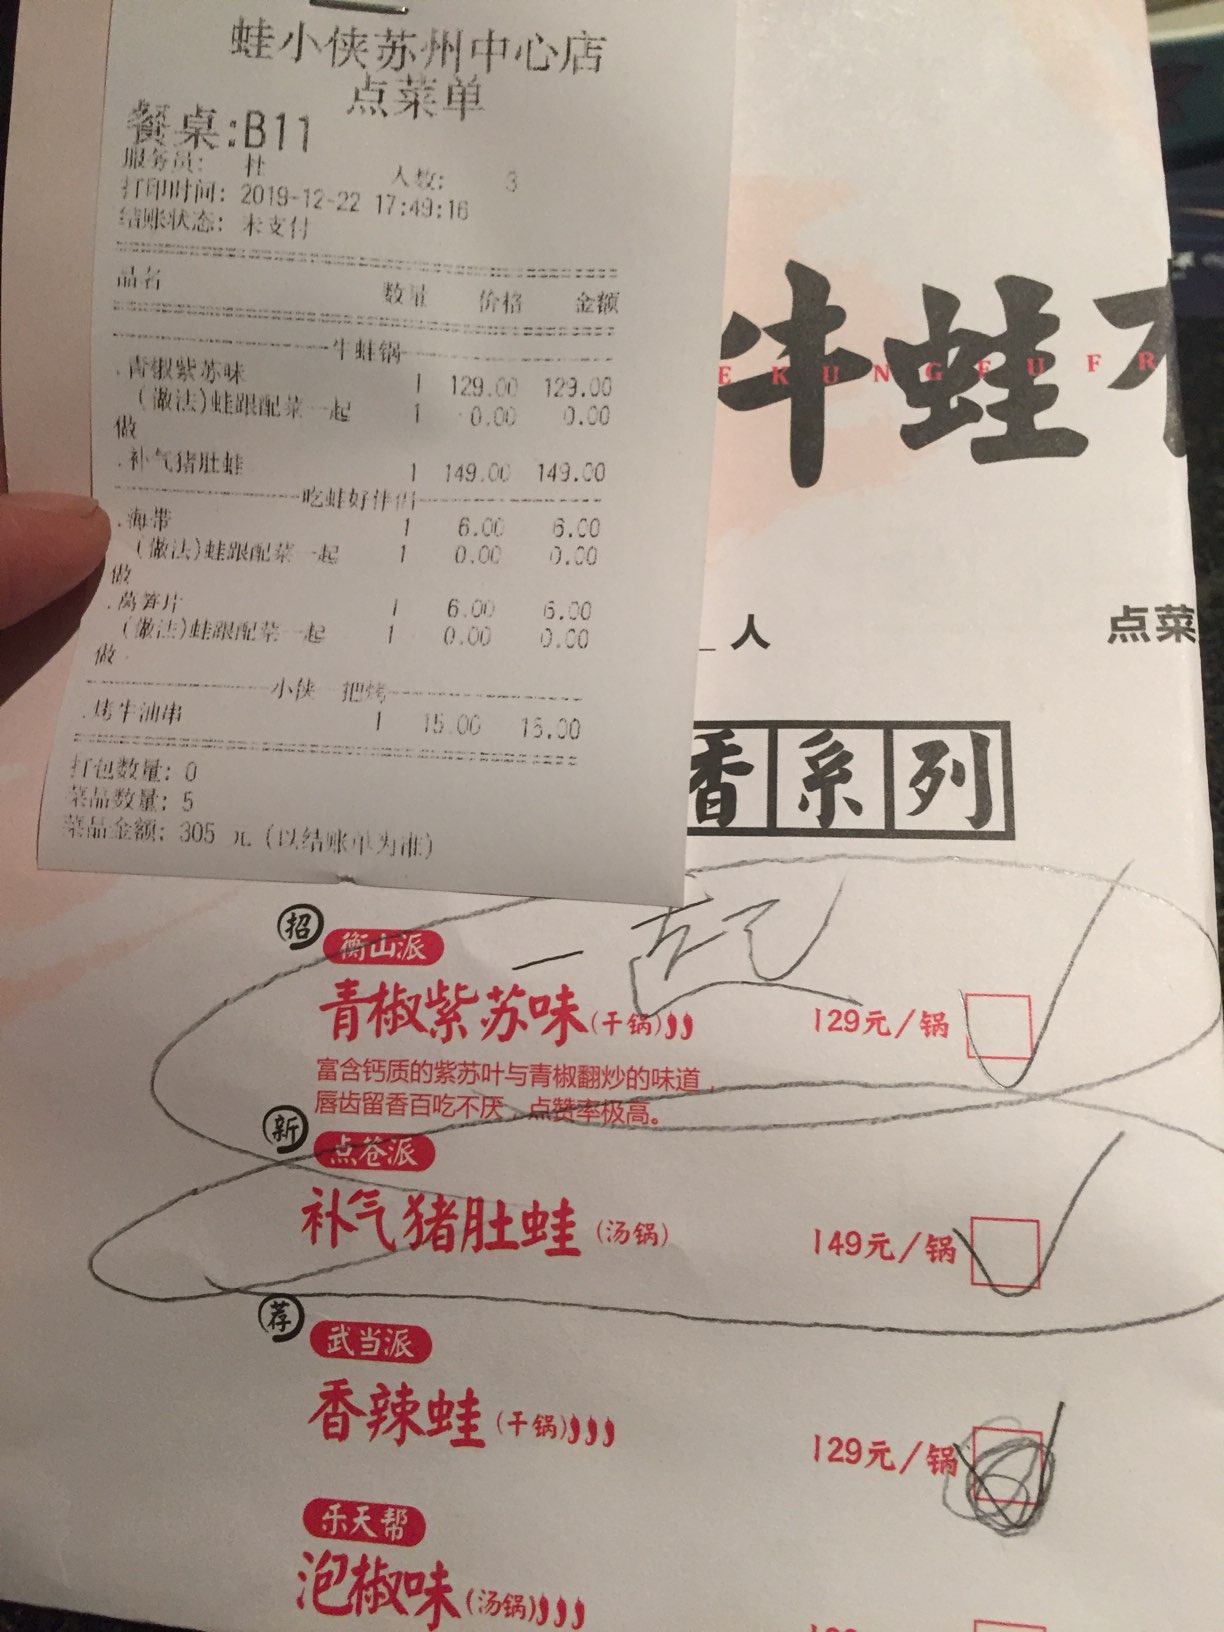 蛙小侠苏州中心店
点菜单
餐桌:B11
服务员: 杜 人数: 3
打印时间: 2019-12-22 17:49:16
结账状态: 未支付
品名 数量 价格 金额
牛蛙锅
.青椒紫苏味 1 129.00 129.00
(做法)蛙跟配菜一起 1 0.00 0.00
做
.补气猪肚蛙 1 149.00 149.00
吃蛙好伴侣
.海带 1 6.00 6.00
(做法)蛙跟配菜一起 1 0.00 0.00
做
.莴笋片 1 6.00 6.00
(做法)蛙跟配菜一起 1 0.00 0.00
做
小侠一把烤
.烤牛油串 1 15.00 15.00
打包数量: 0
菜品数量: 5
菜品金额: 305 元 (以结账单为准)
牛蛙
E KUNGFU FR
人 点菜
香系列
一起
招 衡山派
青椒紫苏味(干锅) 129元/锅
富含钙质的紫苏叶与青椒翻炒的味道,
唇齿留香百吃不厌,点赞率极高。
新 点苍派
补气猪肚蛙(汤锅) 149元/锅
荐 武当派
香辣蛙(干锅) 129元/锅
乐天帮
泡椒味(汤锅)